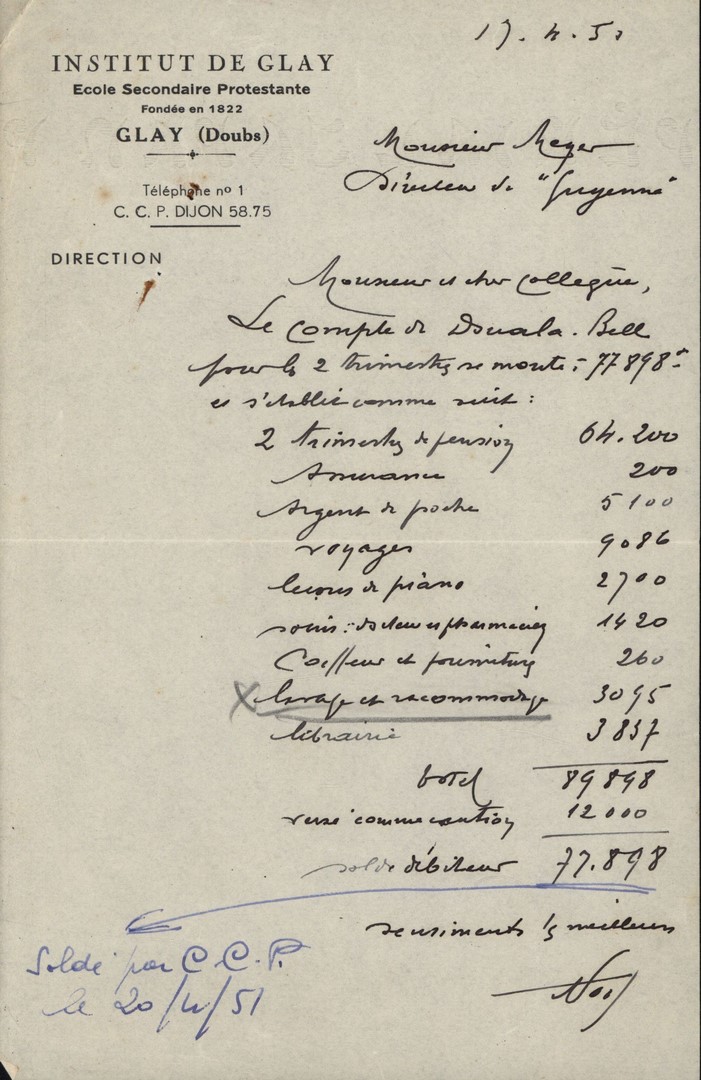 17. 4. 51
INSTITUT DE GLAY
Ecole Secondaire Protestante
Fondée en 1822
GLAY (Doubs)
Téléphone nº 1
C. C. P. DIJON 58.75
DIRECTION
Monsieur Meyer
Directeur de "Guyenne"
Monsieur et cher Collègue,
Le compte de Douala-Bell
pour les 2 trimestres se monte à 77898
et s'établit comme suit :
2 trimestres de pension 64.200
Assurance 200
Argent de poche 5100
voyages 9086
leçons de piano 2700
soins : docteur et pharmacien 1420
Coiffeur et fournitures 260
X lavage et racommodage 3095
librairie 3837
total 89898
versé comme caution 12000
solde débiteur 77.898
sentiments les meilleurs
Soldé par C.C.P.
le 20/4/51